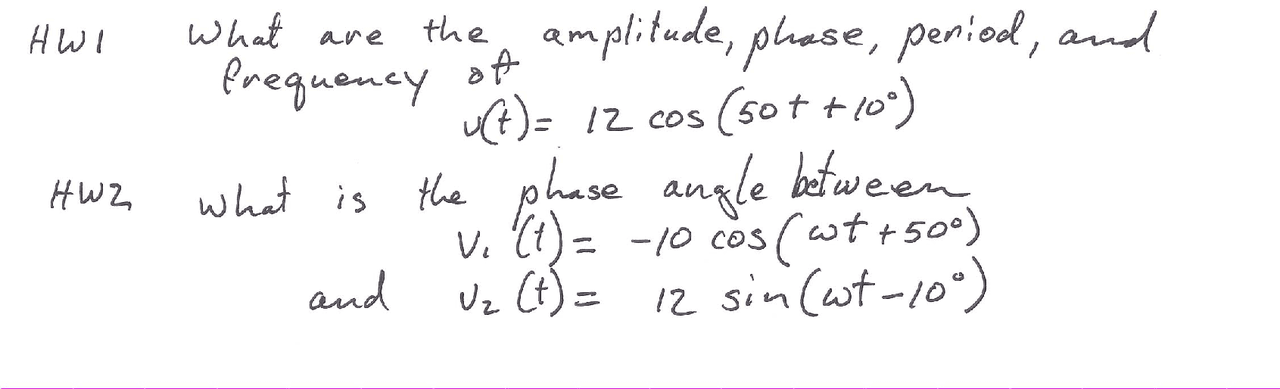 HW1 What are the amplitude, phase, period, and
frequency of
v(t) = 12 cos (50t + 10°)
HW2 What is the phase angle between
v₁(t) = -10 cos (ωt + 50°)
and v₂(t) = 12 sin (ωt - 10°)